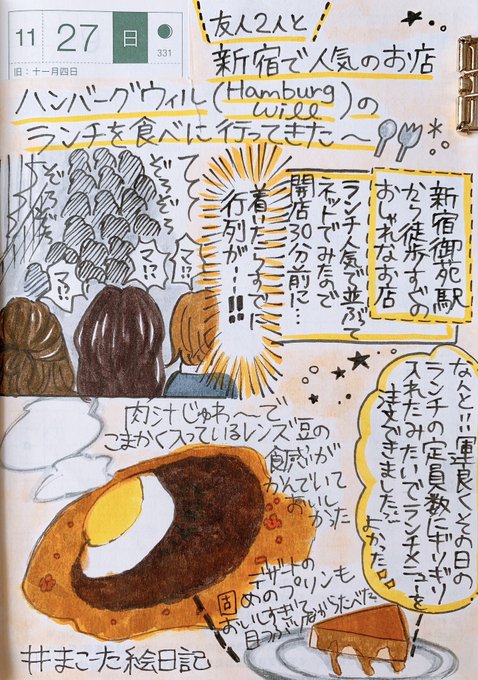 11
27
日
331
旧:十一月四日
友人2人と
新宿で人気のお店
ハンバーグウィル(Hamburg
will)の
ランチを食べに行ってきた〜
新宿御苑駅
から徒歩すぐの
おしゃれなお店
ランチ人気で並ぶって
ネットでみたので
開店30分前に…
着いたらすでに
行列が…!!
てく
ぞろぞろ
ぞろぞろ
マ!?
マ!?
マ!?
なんと!!!運良くその日の
ランチの定員数にギリギリ
入れたみたいでランチメニューを
注文できました…
よかった…
肉汁じゅわ〜で
こまかく入っているレンズ豆の
食感が
かんでいて
おいし
かった
デザートの
固めのプリンも
おいしすぎて
目つぶりながらたべた
#まこーた絵日記